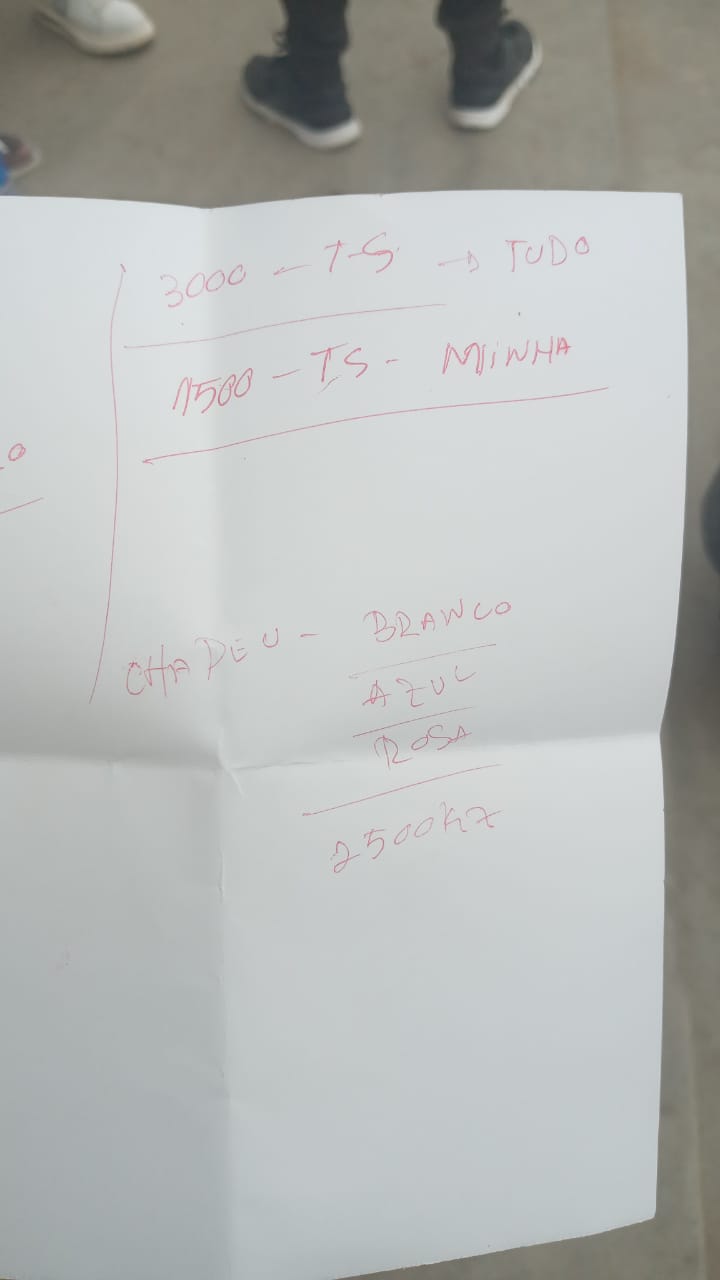 3000 - TS → TUDO
1500 - TS - MINHA
CHAPEU - BRANCO
AZUL
ROSA
2500KZ